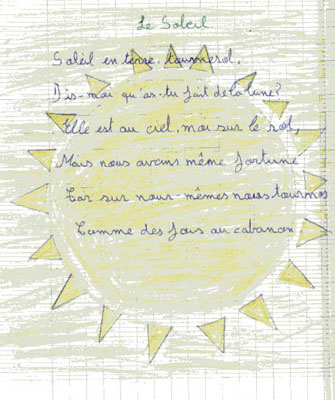 Le Soleil
Soleil en terre, tournesol,
Dis-moi qu'as-tu fait de la lune?
Elle est au ciel, moi sur le sol,
Mais nous avons même fortune
Car sur nous-mêmes nous tournons
Comme des fous au cabanon